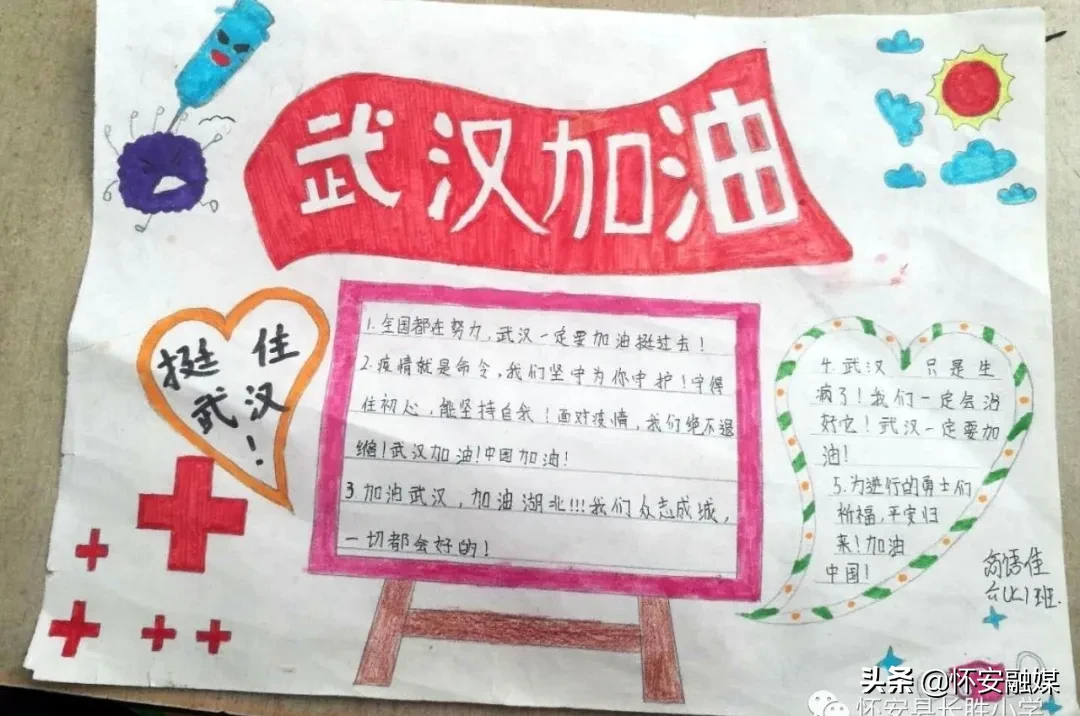 武汉加油
挺住
武汉
!
1.全国都在努力,武汉一定要加油挺过去!
2.疫情就是命令,我们坚守为你守护!守得
住初心,能坚持自我!面对疫情,我们绝不退
缩!武汉加油!中国加油!
3.加油武汉,加油湖北!!!我们众志成城,
一切都会好的!
4.武汉 只是生
病了!我们一定会治
好它!武汉一定要加
油!
5.为逆行的勇士们
祈福,平安归
来!加油
中国!
班
头条 @怀安融媒
怀安县长胜小学